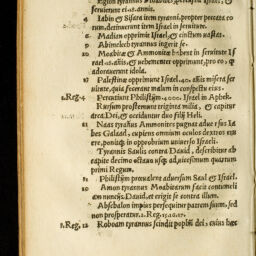 seruierunt ei .18. annis.
4 Iabin & Sisara item tyranni, propter peccata eo
rum, detinuerunt item Israel in seruitium.
6 Madian opprimit Israel, & cinctum uastas.
9 Abimelech tyrannus ingerit se.
10 Moabitæ & Ammonitæ habent in seruitute Is
rael .18. annis, & uehementer opprimunt, pro eo, quod
adorauerunt idola.
17 Palestinæ opprimunt Israel .40. annis misera ser
uitute, quia fecerant malum in conspectu eius.
1. Reg. 4 Percutiunt Philistijm .4000. Israel in Aphek.
Rursum prosternunt triginta milia, & capitur
arca Dei, & occiduntur duo filij Heli.
11 Naas tyrannus Ammonites pugnat aduersus Ia
bes Galaad, cupiens omnium oculos dextros eru
ere, ponitq; in opprobrium uniuerso Israeli.
Tyrannis Saulis contra Dauid, describitur ab
capite decimo octauo usq; ad uicesimum quartum
primi Regum.
Philistijm præualent aduersum Saul & Israel.
10 Amon tyrannus Moabitarum facit contumeli
am nuncijs Dauid, et erigit se contra illum.
Abschalon impius persequitur patrem suum, sed
non prosperatur. 2. Reg. 15.16.17.
3. Reg. 12 Roboam tyrannus scindit populum dei, cuius hæc